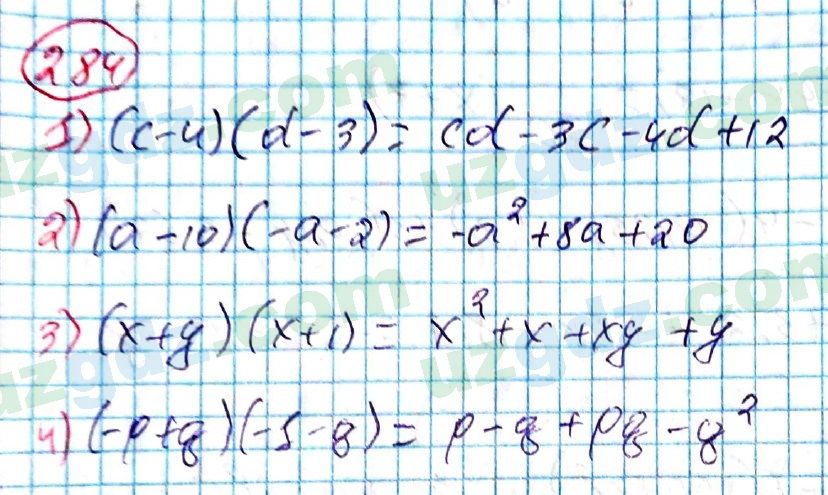 284
1) (c-4)(d-3)= cd-3c-4d+12
2) (a-10)(-a-2)=-a²+8a+20
3) (x+y)(x+1)= x²+x+xy+y
4) (-p+q)(-1-q)= p-q+pq-q²
uzgdz.com